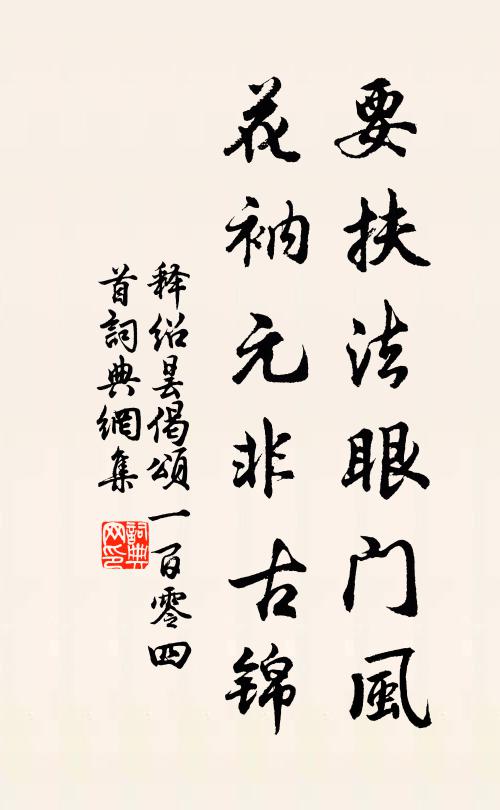 要扶法眼门風
花衲元非古锦
释绍昙偈頌一百零四
首詞典網集
詞典网印